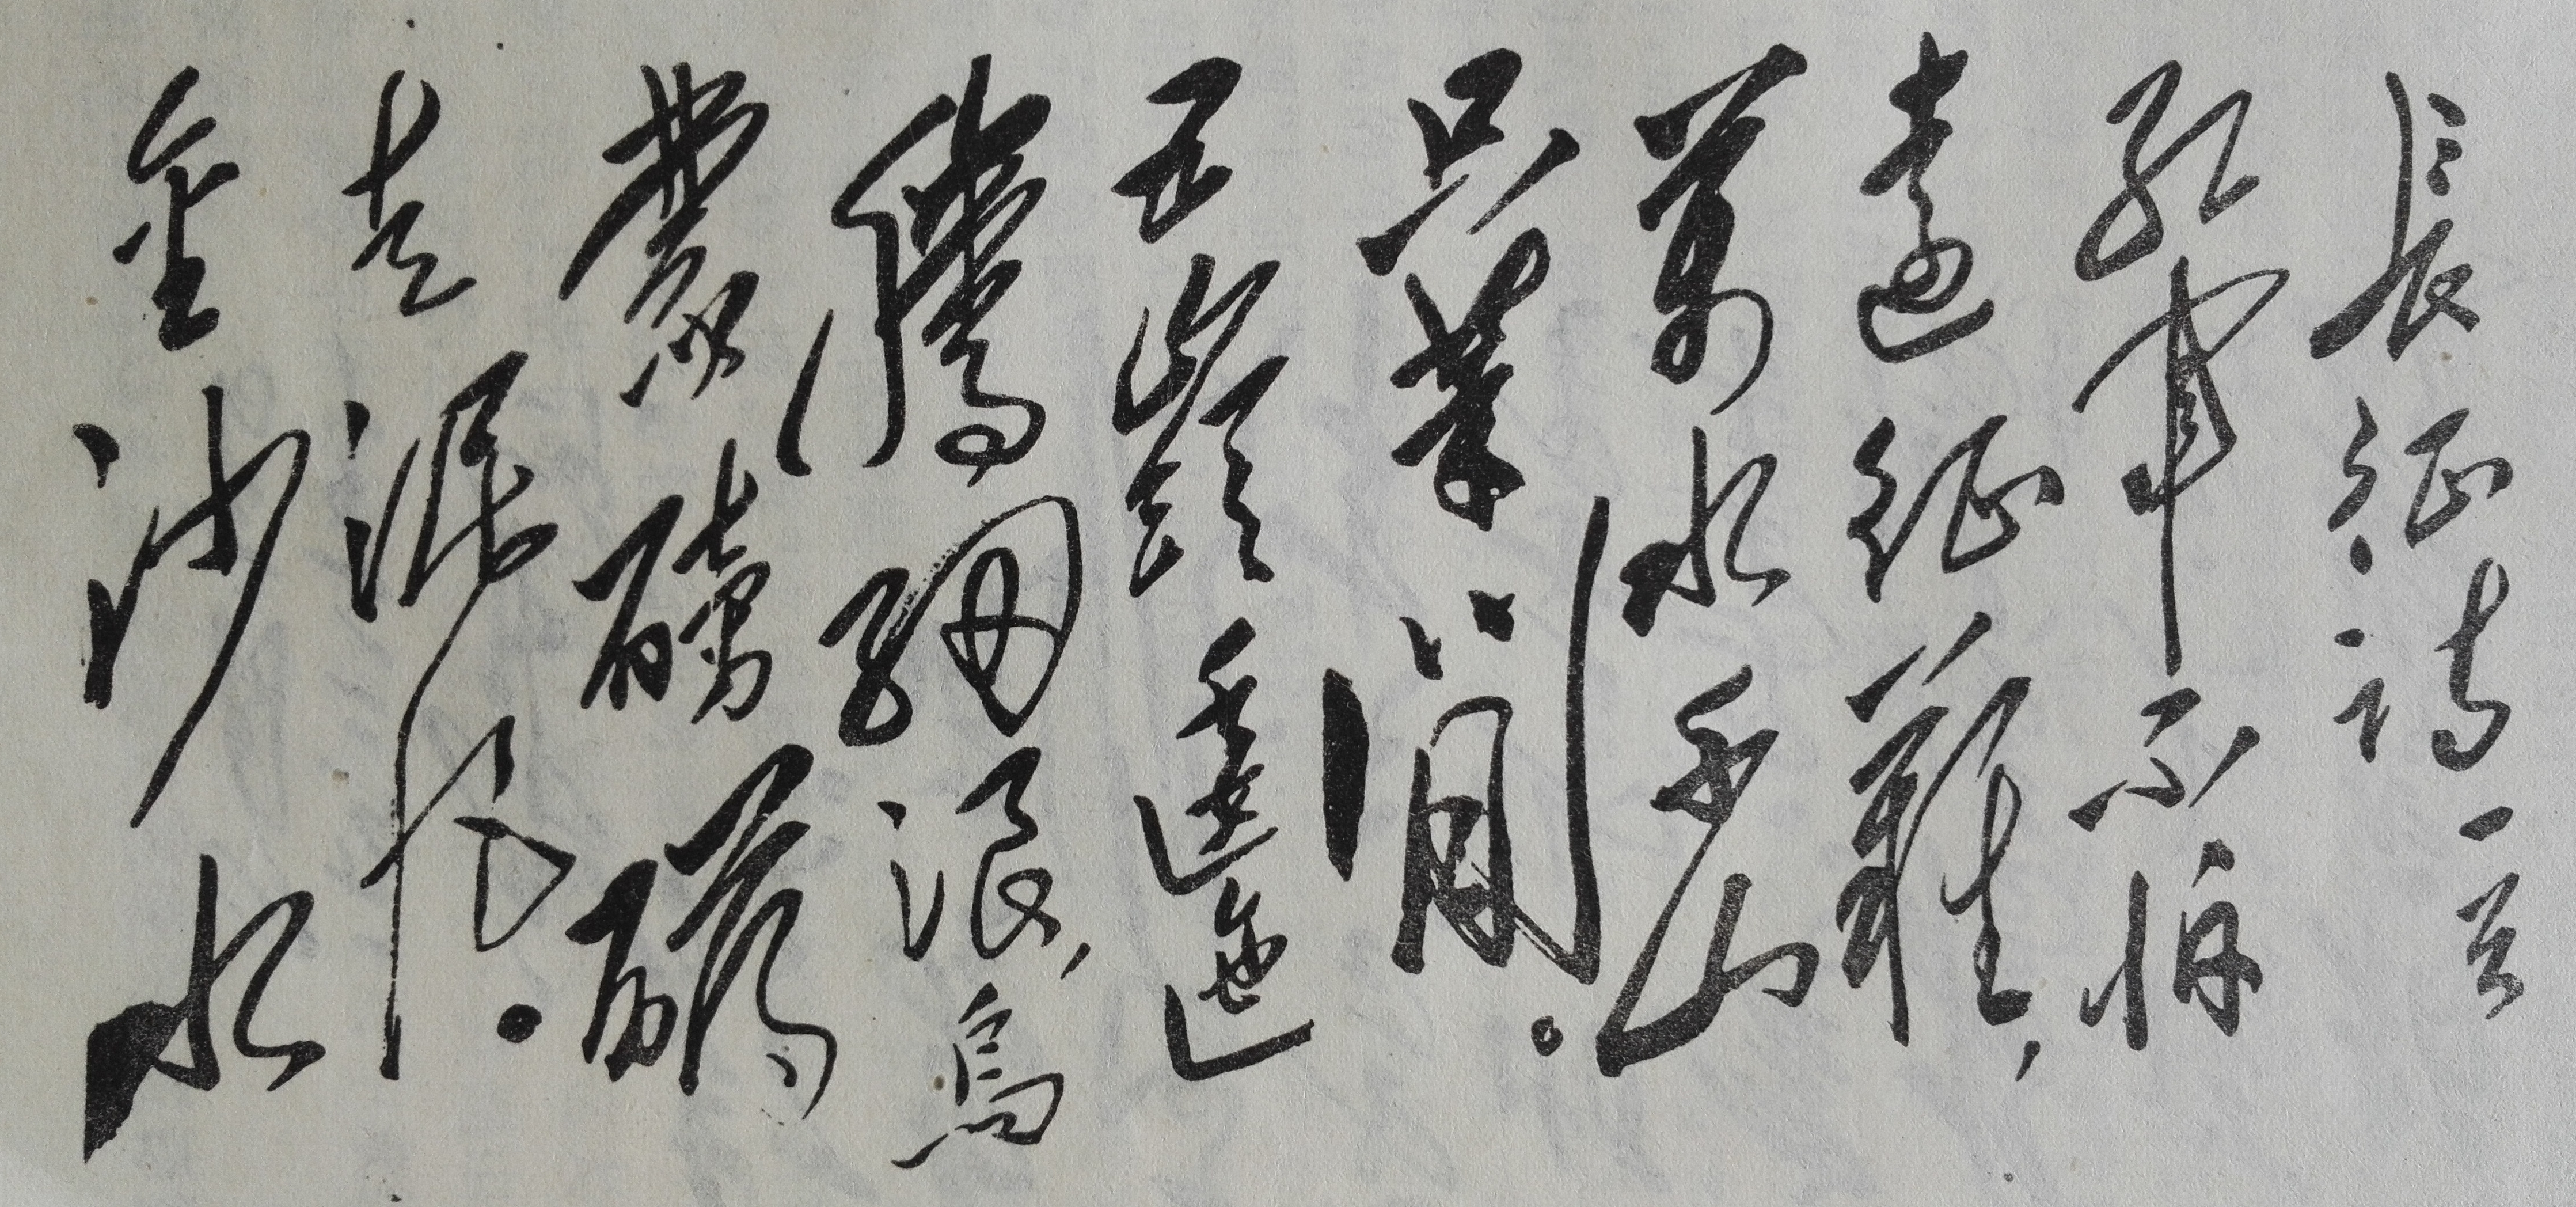 長征詩一首
紅軍不怕
遠征難,
萬水千山
只等閒。
五嶺逶迤
騰細浪,烏
蒙磅礴
走泥丸。
金沙水